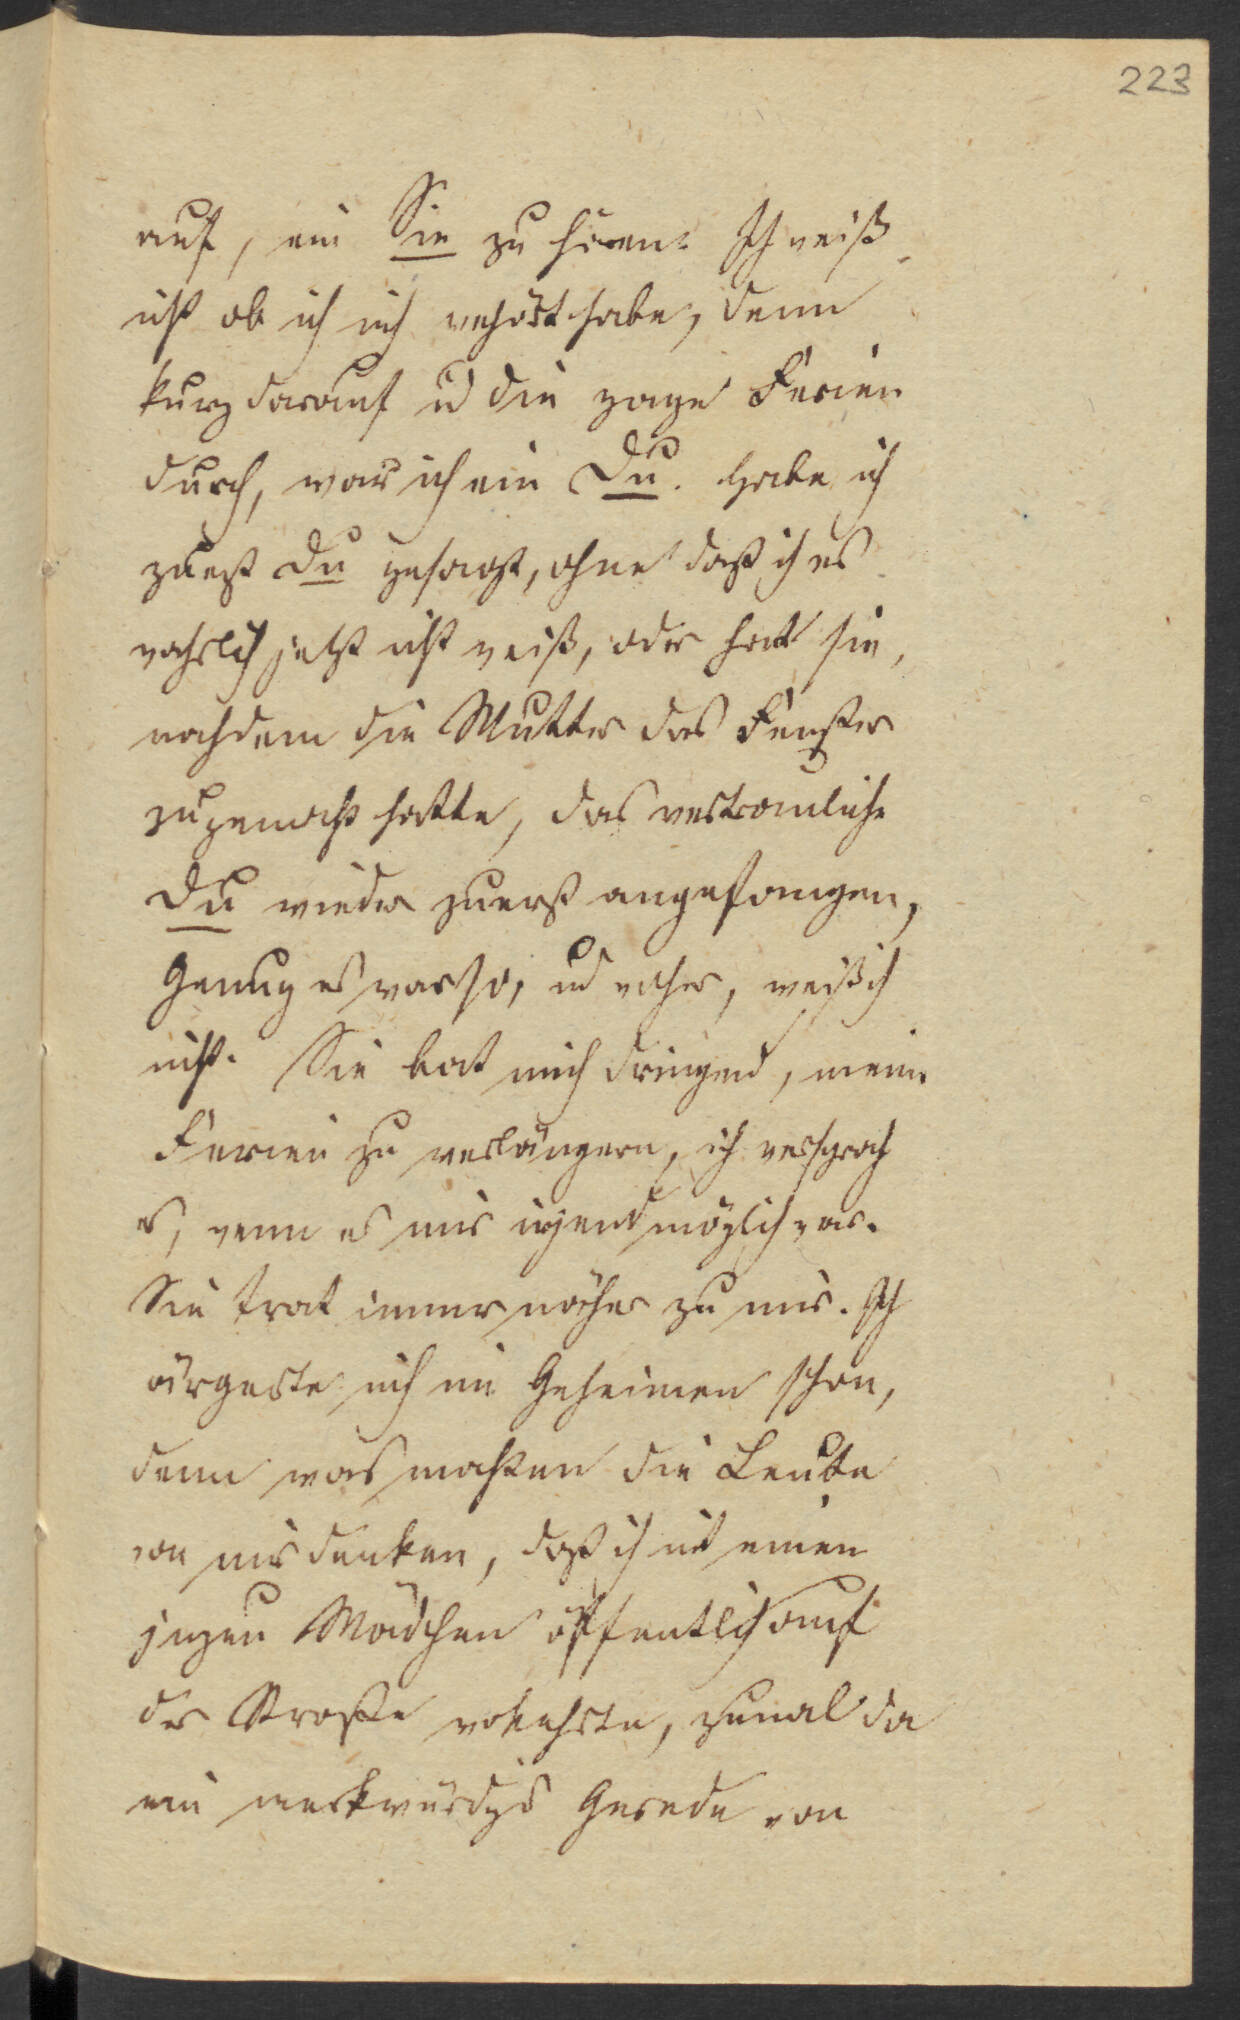 223
auf, ein Sie zu hören. Ich weiß
nicht ob ich mich verhört habe, denn
kurz darauf u die ganze Ferien
durch, war ich ein Du. Habe ich
zuerst Du gesagt, ohne daß ich es
wahrlich jetzt nicht weiß, oder hat sie,
nachdem die Mutter das Fenster
zugemacht hatte, das vertrauliche
Du wieder zuerst angefangen,
Genug es war so, und woher, weiß ich
nicht. Sie bat mich dringend, meine
Ferien zu verlängern, ich versprach
es, wenn es mir irgend möglich war.
Sie trat immer näher zu mir. Ich
ärgerte mich im Geheimen schon,
denn was mußten die Leute
von mir denken, daß ich mit einem
jungen Mädchen öffentlich auf
der Straße verkehrte, zumal da
ein merkwürdigs Gerede von